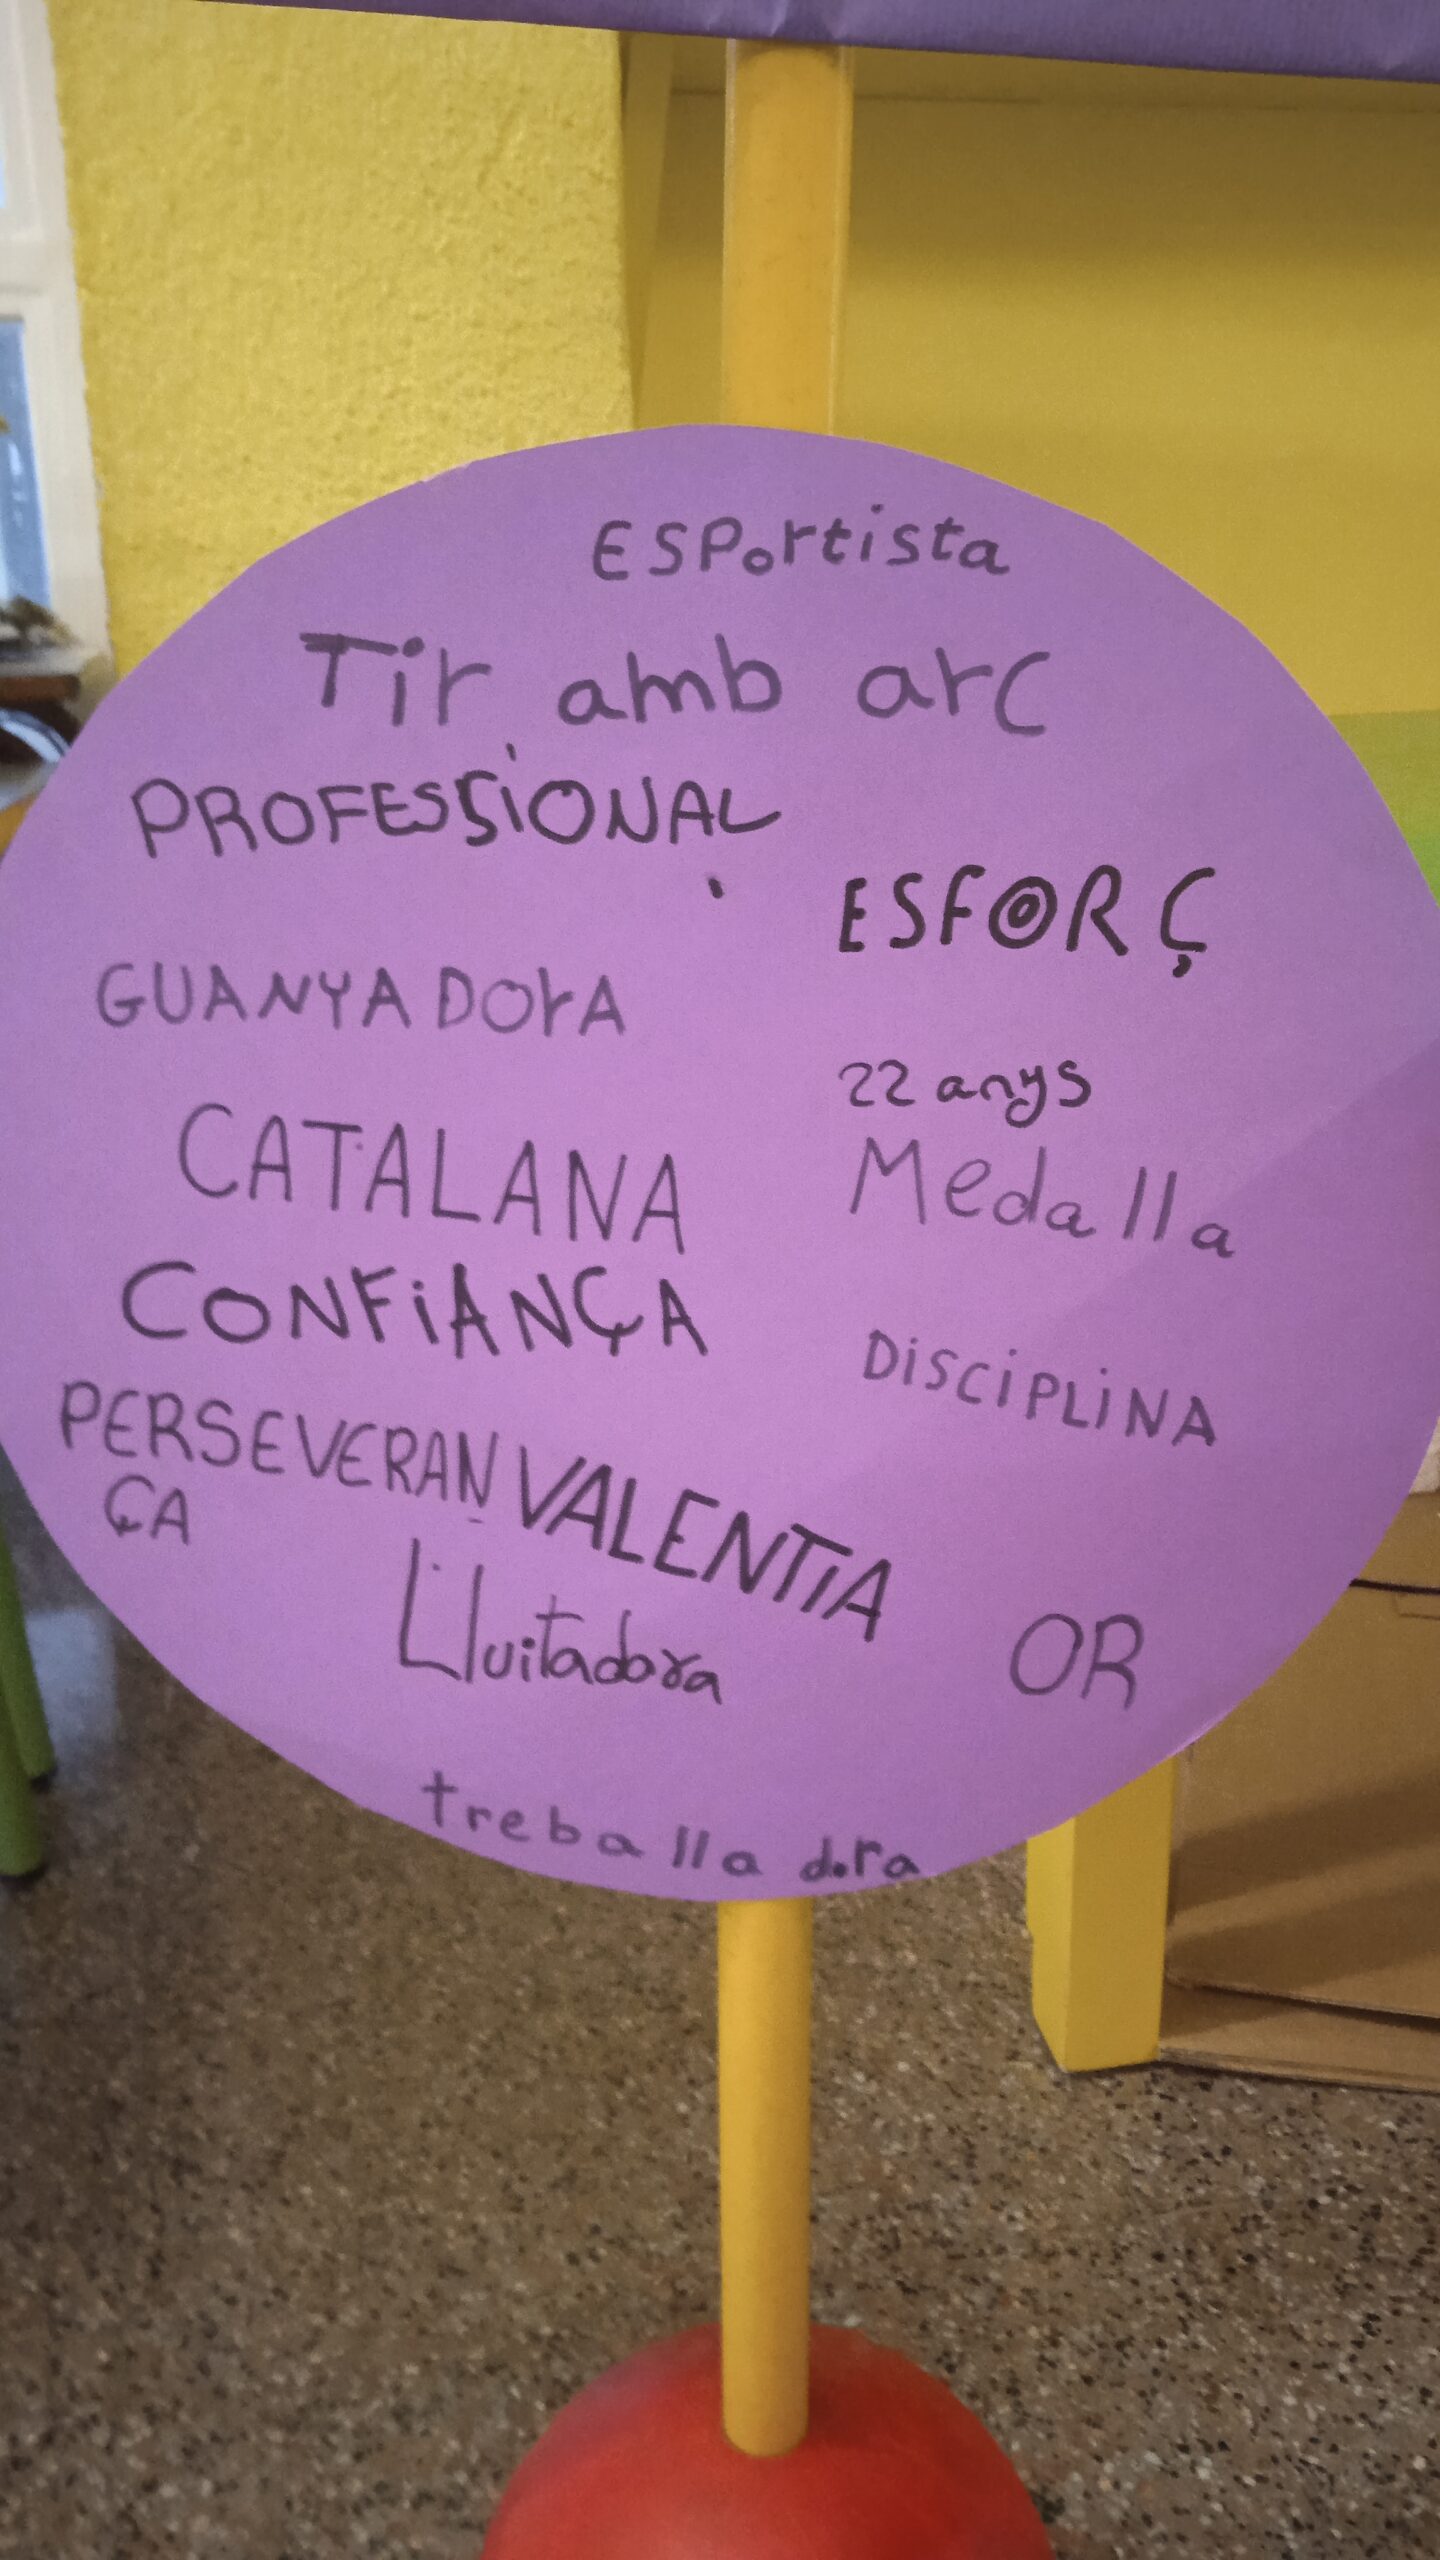 ESPortista
Tir amb arc
PROFESSiONAL
ESFORÇ
GUANYADOrA
22 anys
CATALANA
Medalla
CONFiANÇA
DiSCiPLiNA
PERSEVERAN
ÇA
VALENTiA
Lluitadora
OR
treballadora